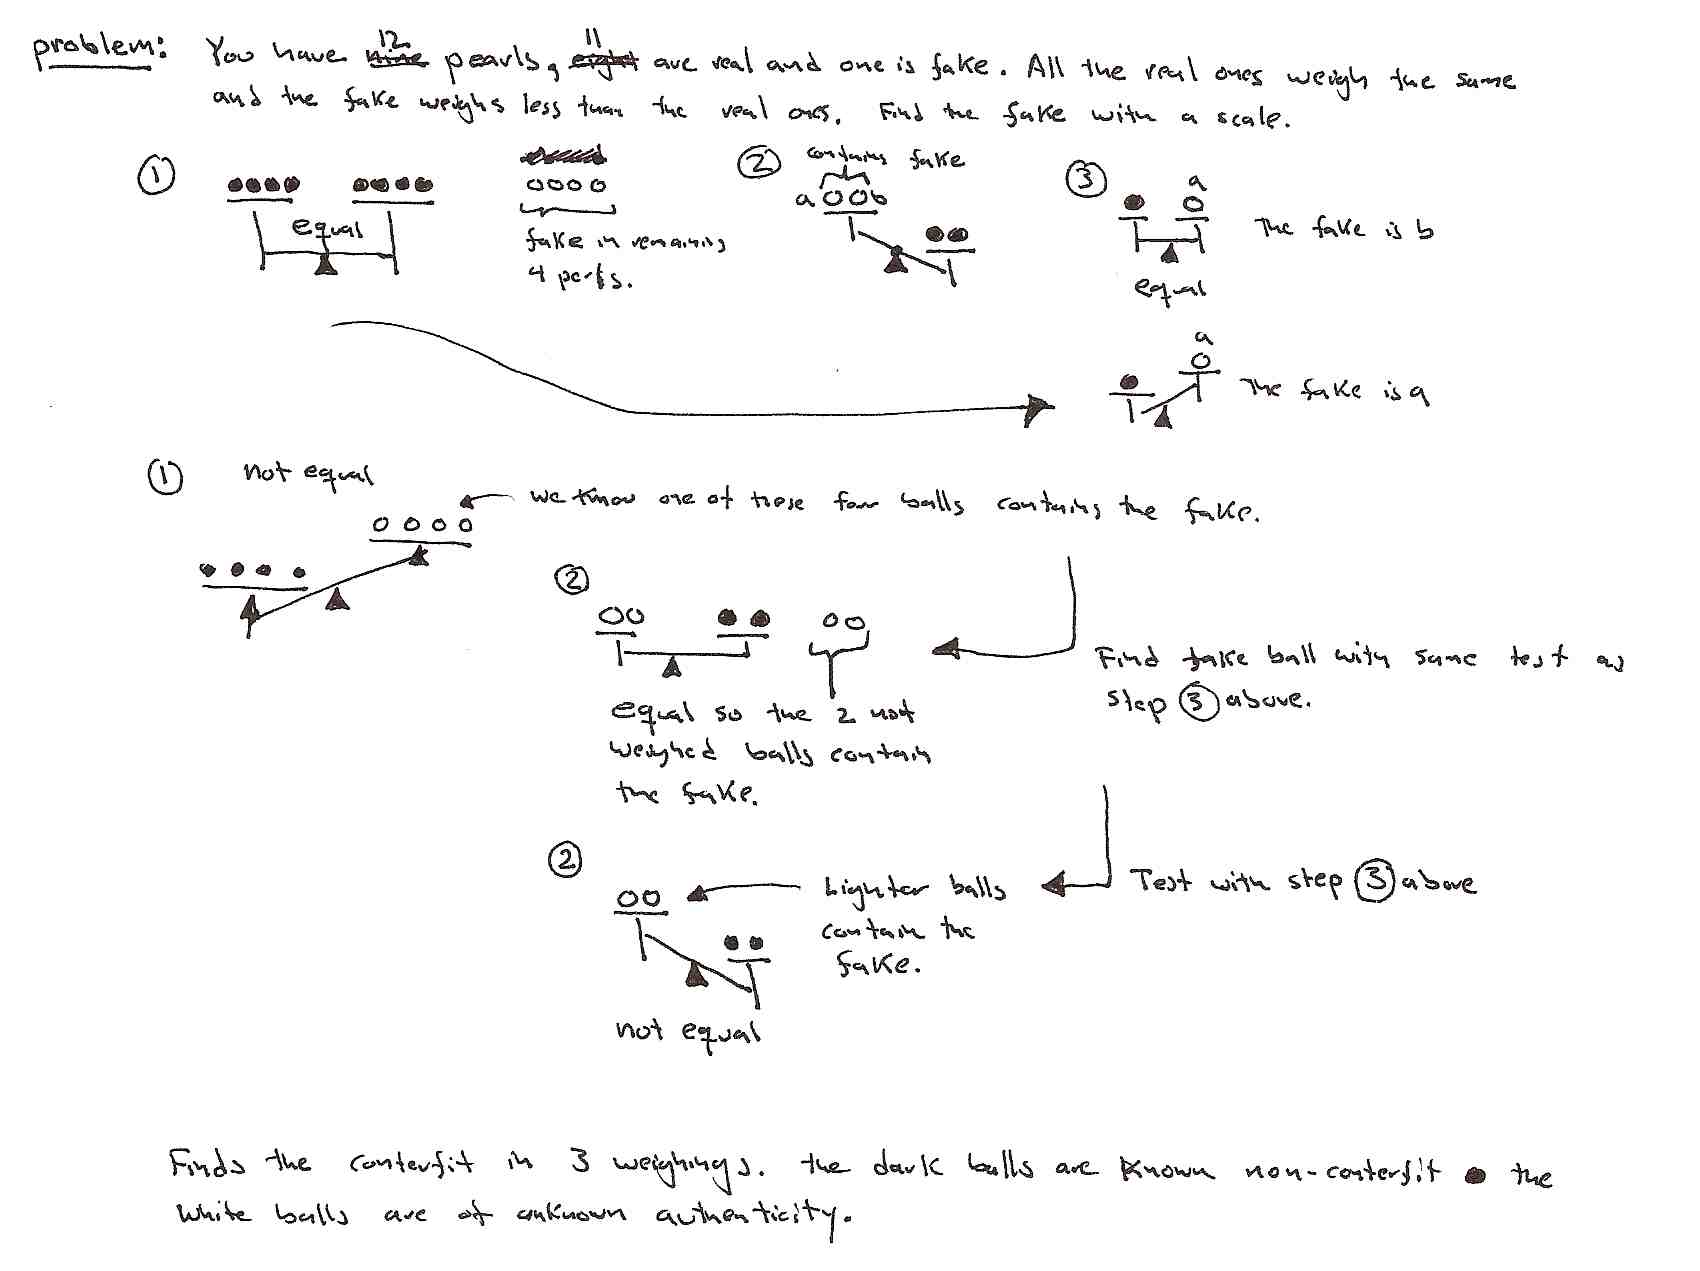 problem: You have 12 pearls, 11 are real and one is fake. All the real ones weigh the same
and the fake weighs less than the real ones. Find the fake with a scale.
①
equal
0000
fake in remaining
4 perls.
② contains fake
a 00 b
③ a
The fake is b
equal
a
The fake is a
① not equal
we know one of these four balls contains the fake.
0000
②
00 00
equal so the 2 not
weighed balls contain
the fake.
Find fake ball with same test as
step ③ above.
②
00
Lighter balls
contain the
fake.
Test with step ③ above
not equal
Finds the conterfit in 3 weighings. the dark balls are known non-conterfit • the
white balls are of unknown authenticity.